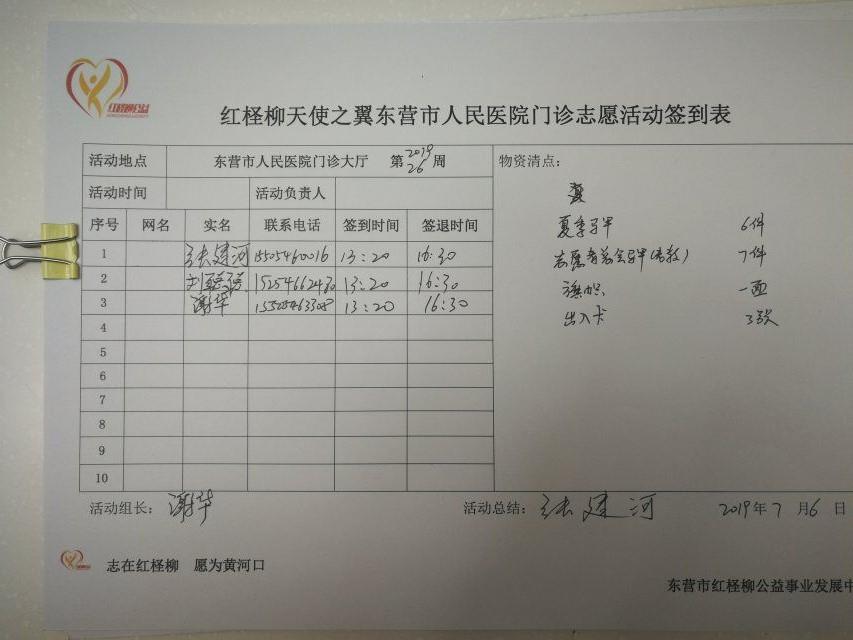 红柽柳公益
红柽柳天使之翼东营市人民医院门诊志愿活动签到表
活动地点 东营市人民医院门诊大厅 第2019 26周
活动时间 活动负责人
序号 网名 实名 联系电话 签到时间 签退时间
1 张建河 15505460016 13:20 16:30
2 刘 13:20 16:30
3 谢华 13:20 16:30
4
5
6
7
8
9
10
物资清点:
夏
夏季马甲 6件
志愿者 马甲 7件
旗帜 一面
出入卡 3张
活动组长: 谢华 活动总结: 张建河 2019年7月6日
志在红柽柳 愿为黄河口
东营市红柽柳公益事业发展中